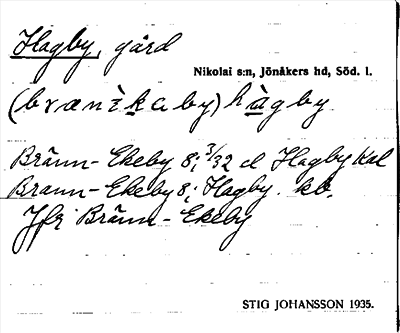 Hagby, gård
Nikolai s:n, Jönåkers hd, Söd. l.
(brænìkaby) hàgby
Bränn-Ekeby 8; 3/32 el Hagby Kal
Brann-Ekeby 8; Hagby kb.
Jfr Bränn-Ekeby
STIG JOHANSSON 1935.